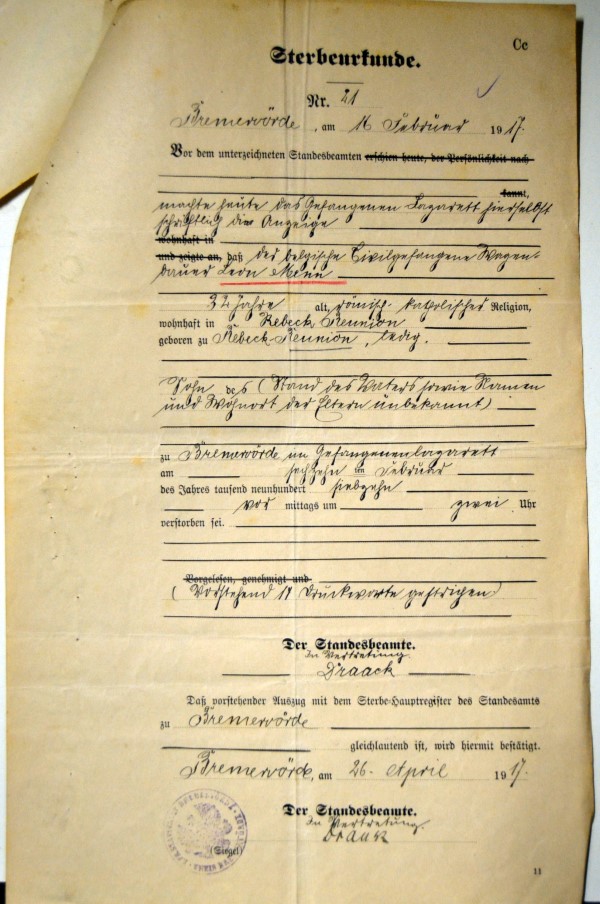 Cc
Sterbeurkunde.
Nr. 21
Bremervörde, am 16 Februar 1917.
Vor dem unterzeichneten Standesbeamten erschien heute, der Persönlichkeit nach
kannt,
machte heute das Gefangenen Lazarett hierselbst
schriftlich die Anzeige
wohnhaft in
und zeigte an, daß der belgische Civilgefangene Wagen-
bauer Leon Menn
32 Jahre alt, römisch-katholischer Religion,
wohnhaft in Rebeck Reunion
geboren zu Rebeck-Reunion, ledig.
Sohn des (Stand des Vaters sowie Namen
und Wohnort der Eltern unbekannt)
zu Bremervörde im Gefangenenlazarett
am sechzehn ten Februar
des Jahres tausend neunhundert siebzehn
vor mittags um zwei Uhr
verstorben sei.
Vorgelesen, genehmigt und
(Vorstehend 17 Druckworte gestrichen)
Der Standesbeamte.
In Vertretung
Draack
Daß vorstehender Auszug mit dem Sterbe-Hauptregister des Standesamts
zu Bremervörde
gleichlautend ist, wird hiermit bestätigt.
Bremervörde, am 26. April 1917.
Der Standesbeamte.
In Vertretung
Draack
(Siegel)
11